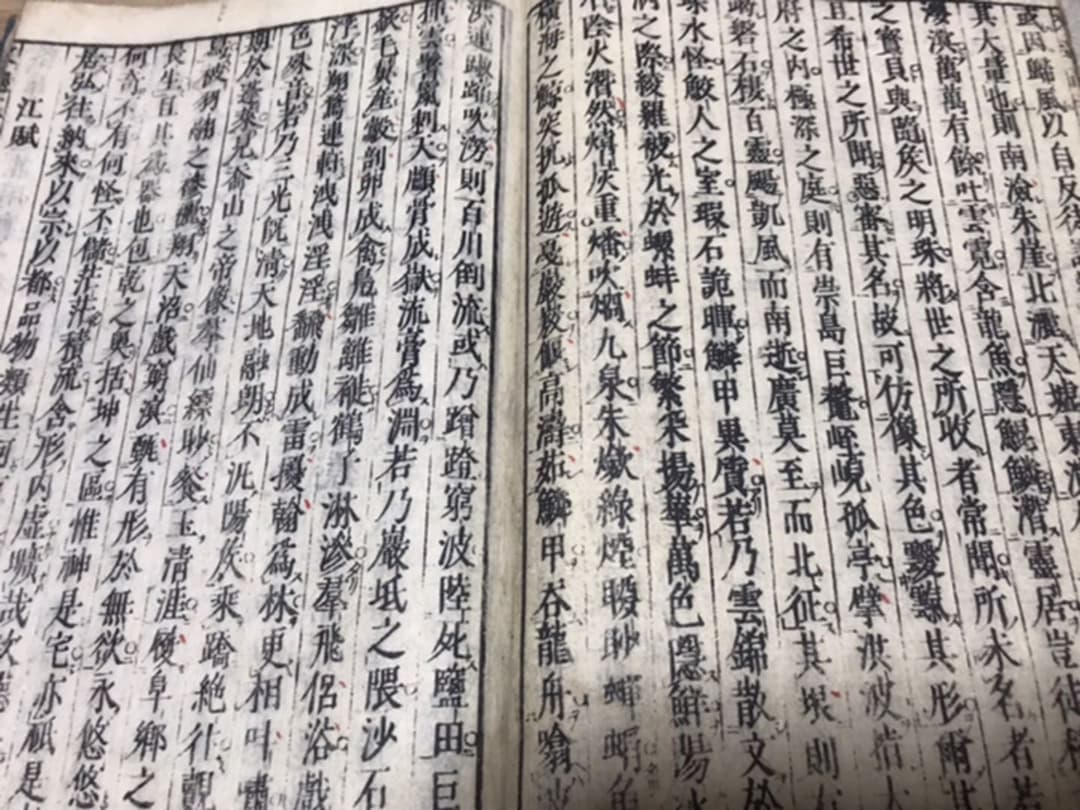 或因歸風以自反徒
其大量也則南澰朱崖北灑天墟東演
漫濱萬萬有餘吐雲霓含龍魚隱鯤鱗潛靈居豈徒積
之寶貝與隨侯之明珠將世之所收者常聞所未名者若
且希世之所聞惡審其名故可仿像其色靉霼其形爾其
府之內極深之庭則有崇島巨鼇峌峴孤亭擘洪波指太
磐石棲百靈颺凱風而南逝廣莫至而北征其垠則
琛水怪鮫人之室瑕石詭暉鱗甲異質若乃雲錦散文於
汭之際綾羅被光於螺蚌之節繁采揚華萬色隱鮮陽冰
陰火潛然熺炭重燔吹烱九泉朱燩綠煙腰眇蟬蜎魚
橫海之鯨突扤孤遊戛巖偃高濤茹鱗甲吞龍舟噏
洪連踧蹜吹澇則百川倒流或乃蹭蹬窮波陸死鹽田巨
插雲鬐鬣刺天顱骨成嶽流膏為淵若乃巖坻之隈沙石
嶔毛翼產鷇剖卵成禽鳧雛離褷鶴子淋滲羣飛侶浴戲
浮深翔霧連軒洩洩淫淫翻動成雷擾翰為林更相叫嘯
色殊音若乃三光既清天地融朗不汎陽侯乘蹻絕往覿
期於蓬萊見喬山之帝像羣仙縹眇餐玉清涯履阜鄉之
舄被羽翮之襂纚翔天沼戲窮溟甄有形於無欲永悠悠
長生且其為器也包乾之奧括坤之區惟神是宅亦祇是
何奇不有何怪不儲茫茫積流含形內虛曠哉坎德
弘往納來以宗以都品物類生何
江賦